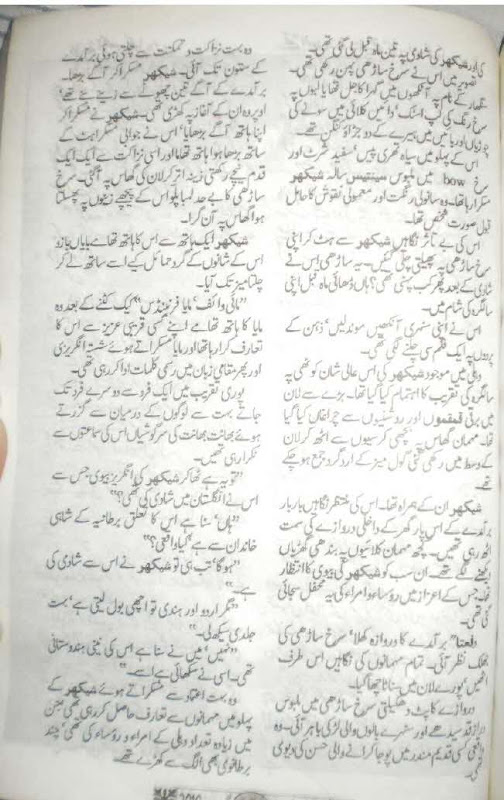 کی اور شیکھر کی شادی پہ تین ماہ قبل لی گئی تھی۔
تصویر میں اس نے سرخ ساڑھی پہن رکھی تھی۔
سنگھار کے نام پہ آنکھوں میں گہرا کاجل تھا یا لبوں پہ
سرخ رنگ کی لپ اسٹک' دائیں کلائی میں سونے کی
چوڑیاں اور بائیں میں ہیرے کے دو جڑاؤ کنگن تھے۔
اس کے پہلو میں سیاہ تھری پیس' سفید شرٹ اور
سرخ bow میں ملبوس سینتیس سالہ شیکھر
مسکرا رہا تھا۔ وہ سانولی رنگت اور معمولی نقوش کا حامل
قبول صورت شخص تھا۔
اس کی بے تاثر نگاہیں شیکھر سے ہٹ کر اپنی
سرخ ساڑھی پہ پھیلتی چلی گئیں۔ یہ ساڑھی اس نے
شادی کے بعد پھر کب پہنی تھی؟ ہاں ڈھائی ماہ قبل اپنی
سالگرہ کی شام میں۔
اس نے اپنی سنہری آنکھیں موند لیں' ذہن کے
پردوں پہ ایک فلم سی چلنے لگی تھی۔
دہلی میں موجود شیکھر کی اس عالی شان کوٹھی پہ
سالگرہ کی تقریب کا اہتمام کیا گیا تھا۔ بڑے سے لان
میں برقی قمقموں اور روشنیوں سے چراغاں کیا گیا
تھا۔ مہمان گھاس پہ بچھی کرسیوں سے اٹھ کر لان
کے وسط میں رکھی گئی گول میز کے ارد گرد جمع ہو چکے
تھے۔
شیکھر ان کے ہمراہ تھا۔ اس کی منتظر نگاہیں بار بار
برآمدے کے اس پار گھر کے داخلی دروازے کی سمت
اٹھ رہی تھیں۔ کچھ مہمان کلائیوں پہ بندھی گھڑیاں
دیکھنے لگے تھے۔ ان سب کو شیکھر کی بیوی کا انتظار
تھا۔ جس کے اعزاز میں رؤسا و امراء کی یہ محفل سجائی
گئی تھی۔
دفعتا" برآمدے کا دروازہ کھلا' سرخ ساڑھی کی
جھلک نظر آئی۔ تمام مہمانوں کی نگاہیں اس طرف
اٹھیں' پورے لان میں سناٹا چھا گیا۔
دروازے کا پٹ دھکیلتی سرخ ساڑھی میں ملبوس
دراز قد سیدھے اور سنہرے بالوں والی لڑکی باہر آئی۔ وہ
واقعی کسی قدیم مندر میں پوجا کرانے والی حسن کی دیوی
تھی۔
وہ بہت نزاکت و تمکنت سے چلتی ہوئی برآمدے
کے ستون تک آئی۔ شیکھر مسکرا کر آگے بڑھا۔
برآمدے کے آگے تین چھوٹے سے زینے بنے تھے'
اوپر وہ ان کے آغاز پہ کھڑی تھی۔ شیکھر نے مسکرا کر
اپنا ہاتھ آگے بڑھایا' اس نے جوابی مسکراہٹ کے
ساتھ بڑھا ہوا ہاتھ تھاما اور اسی نزاکت سے ایک ایک
قدم نیچے رکھتی زینہ اتر کر لان کی گھاس پہ آ گئی۔ سرخ
ساڑھی کا بے حد لمبا پلو اس کے پیچھے زینوں پہ پھسلتا
ہوا گھاس پہ آن گرا۔
شیکھر ایک ہاتھ سے اس کا ہاتھ تھامے بایاں بازو
اس کے شانوں کے گرد حمائل کیے اسے ساتھ لے کر
چلتا میز تک آیا۔
"مائی وائف' مایا فرینڈز!" کیک کٹنے کے بعد وہ
مایا کا ہاتھ تھامے اپنے کسی قریبی عزیز سے اس کا
تعارف کرا رہا تھا اور مایا مسکراتے ہوئے شستہ انگریزی
اور پھر مقامی زبان میں رسمی کلمات ادا کر رہی تھی۔
پوری تقریب میں ایک فرد سے دوسرے فرد تک
جاتے بہت سے لوگوں کے درمیان سے گزرتے
ہوئے بھانت بھانت کی سرگوشیاں اس کی سماعتوں سے
ٹکرا رہی تھیں۔
"تو یہ ہے ٹھاکر شیکھر کی انگریز بیوی جس سے
اس نے انگلستان میں شادی کی تھی؟"
"ہاں' سنا ہے اس کا تعلق برطانیہ کے شاہی
خاندان سے ہے' کیا واقعی؟"
"ہوگا' تب ہی تو شیکھر نے اس سے شادی کی
ہے۔"
"مگر اردو اور ہندی تو اچھی بول لیتی ہے' بہت
جلدی سیکھ لی۔"
"نہیں' میں نے سنا ہے اس کی نینی ہندوستانی
تھی۔ اسی نے سکھائی ہے اسے۔"
وہ بہت اعتماد سے مسکراتے ہوئے شیکھر کے
پہلو میں مہمانوں سے تعارف حاصل کر رہی تھی' جن
میں زیادہ تعداد دہلی کے امراء و رؤساء کی تھی' چند
برطانوی بھی الگ سے کھڑے تھے۔